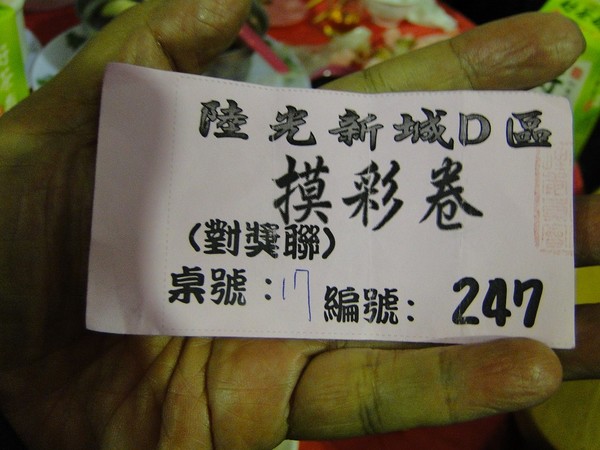 陸光新城D區
摸彩卷
(對獎聯)
桌號:17 編號: 247